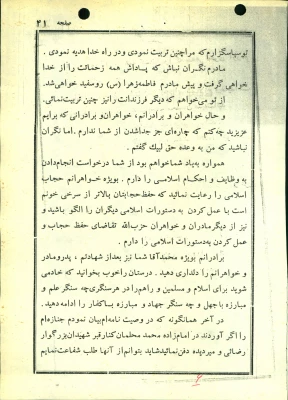 صفحه ۴۱
توسپاسگزارم که مراچنین تربیت نمودی ودر راه خدا هدیه نمودی .
مادرم نگران نباش که پاداش همه زحماتت را از خدا
خواهی گرفت و پیش مادرم فاطمه زهرا (س) روسفید خواهی شد.
از تو می‌خواهم که دیگر فرزندانت را نیز چنین تربیت نمائی.
و حال خواهران و برادرانم، خواهران و برادرانی که برایم
عزیزید چه کنم که چاره‌ای جز جداشدن از شما ندارم .اما نگران
نباشید که من به وعده حق لبیک گفتم .
همواره به یاد شماخواهم بود از شما درخواست انجام‌دادن
به وظایف و احکام اسلامی را دارم . بویژه خواهرانم حجاب
اسلامی را رعایت نمائید که حفظ حجابتان بالاتر از سرخی خونم
است با عمل کردن به دستورات اسلامی دیگران را الگو باشید و
نیز از دیگر مادران و خواهران حزب‌الله تقاضای حفظ حجاب و
عمل کردن به دستورات اسلامی را دارم .
برادرانم بویژه محمدآقا شما نیز بعداز شهادتم ، پدرومادر
و خواهرانم را دلداری دهید . درستان راخوب بخوانید که خادمی
شوید برای اسلام و مسلمین و راهم را در هرسنگری چه سنگر علم و
مبارزه با جهل و چه سنگر جهاد و مبارزه با کفار را ادامه دهید.
در آخر همانگونه که در وصیت نامه‌ام بیان نمودم جنازه‌ام
را اگر آوردند در امام‌زاده محمد محلمان کنار قبر شهیدان بزرگوار
رضائی و میردیده دفن نمائید شاید بتوانم از آنها طلب شفاعت نمایم